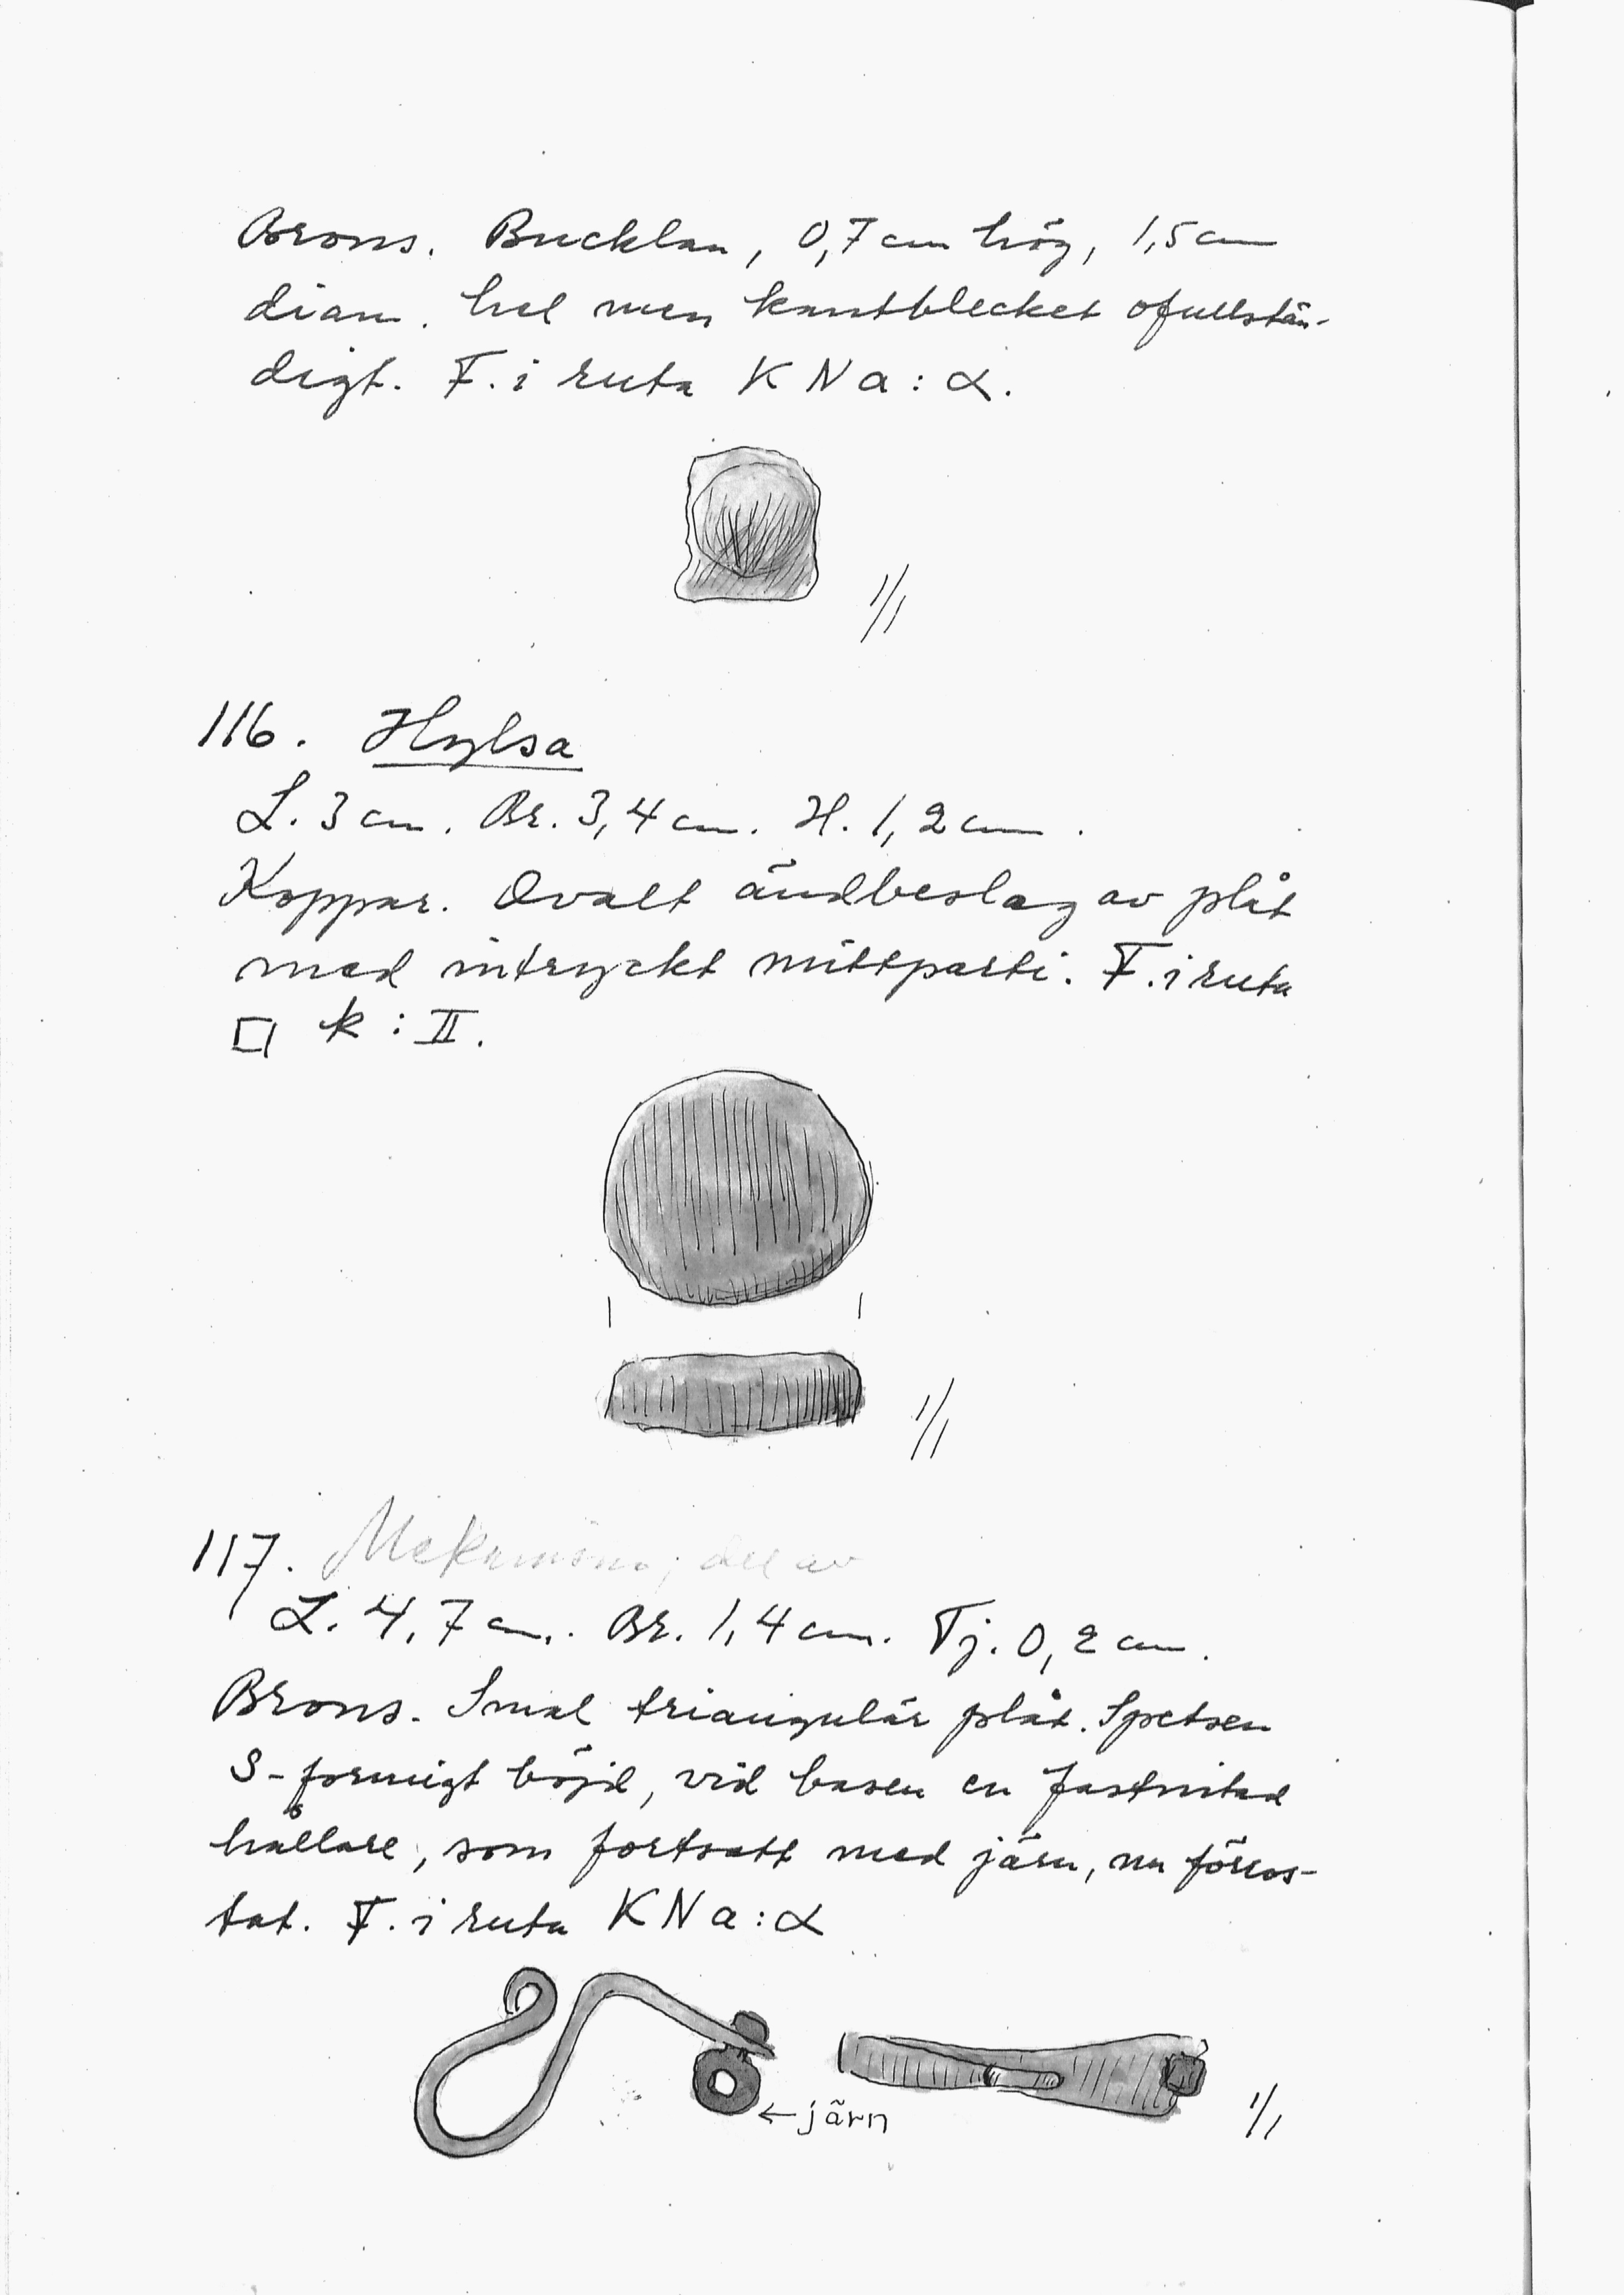 Brons. Bucklan, 0,7 cm hög, 1,5 cm
diam. hel men kantblecket ofullstän-
digt. F. i ruta K N a : α.
1/1
116. Hylsa
L. 3 cm. Br. 3,4 cm. H. 1,2 cm.
Koppar. Ovalt ändbeslag av plåt
med intryckt mittparti. F. i ruta
□ k : II.
1/1
117. Mekanism, del av
L. 4,7 cm. Br. 1,4 cm. Tj. 0,2 cm.
Brons. Smal triangulär plåt. Spetsen
S-formigt böjd, vid basen en fastnitad
hållare, som fortsatt med järn, nu förros-
tat. F. i ruta K N a : α
← järn
1/1